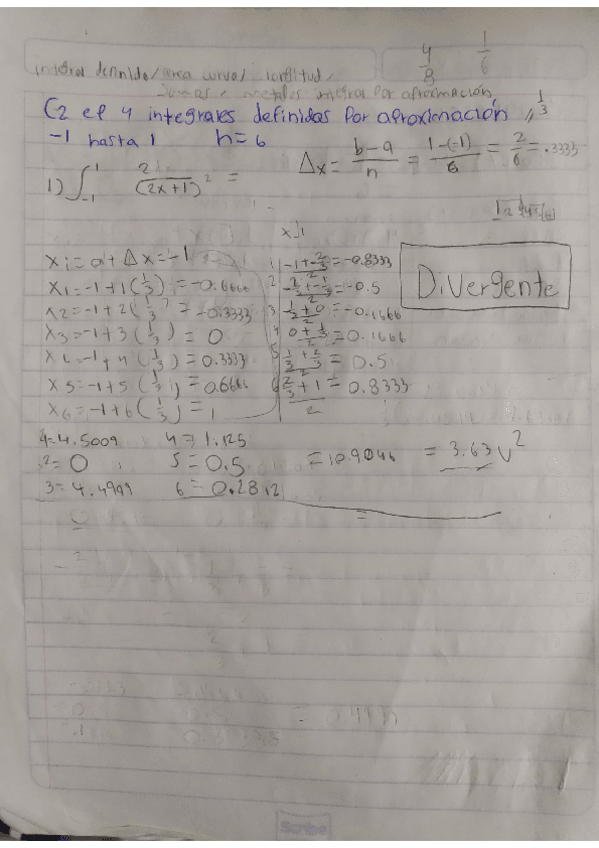 4/8 1/6
integral definida/area curva/longitud/
integral por aproximación
C2 ef 4 integrales definidas por aproximación 1/3
-1 hasta 1 n=6
Δx = b-a/n = 1-(-1)/6 = 2/6 = .3333
1) ∫_{-1}^{1} 2/(2x+1)² =
xi=a+Δx=-1
x1=-1+1(1/3)=-0.6666
x2=-1+2(1/3)=-0.3333
x3=-1+3(1/3)=0
x4=-1+4(1/3)=0.3333
x5=-1+5(1/3)=0.6666
x6=-1+6(1/3)=1
1 -1+-2/3/2=-0.8333
2 -2/3+-1/3/2=-0.5
3 -1/3+0/2=-0.1666
4 0+1/3/2=0.1666
5 1/3+2/3/2=0.5
6 2/3+1/2=0.8333
Divergente
1=4.5009 4=1.125
2=0 5=0.5 =10.9046 = 3.63 u²
3=4.4999 6=0.2812
=
Scribe